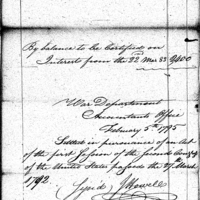 By balance to be Certified on
Interest from the 22d Mar 83 $400
War Department
Accountants Office
February 5th 1795
Settled in pursuance of an Act
of the first Session of the second Congress
of the United States passed the 27th March
1792.
Signed J Howell